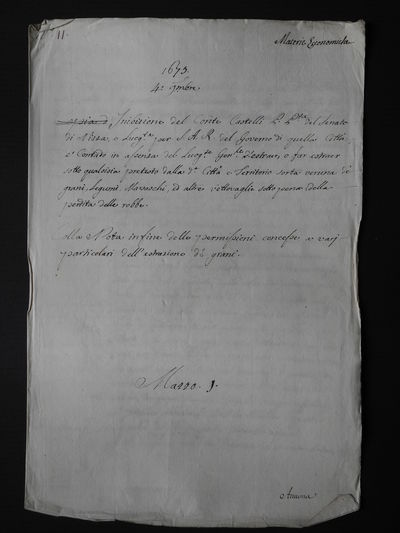 11.
Materie Economiche
1673.
4. 9mbre
Inibizione del Conte Castelli P. Pnte del Senato
di Nizza, e Luogte per S. A. R. del Governo di quella Città
e Contado in assenza del Luogte Genle d'estrarre, o far estraer
sotto qualsivia pretesto dalla da Città e Territorio sorta veruna di
grani, Legumi, Marzaschi, ed altre vettovaglie sotto pena della
perdita delle robbe.
colla Nota infine delle permissioni concesse a varj
particolari dell'estrazione di grani.
Mazzo 1.